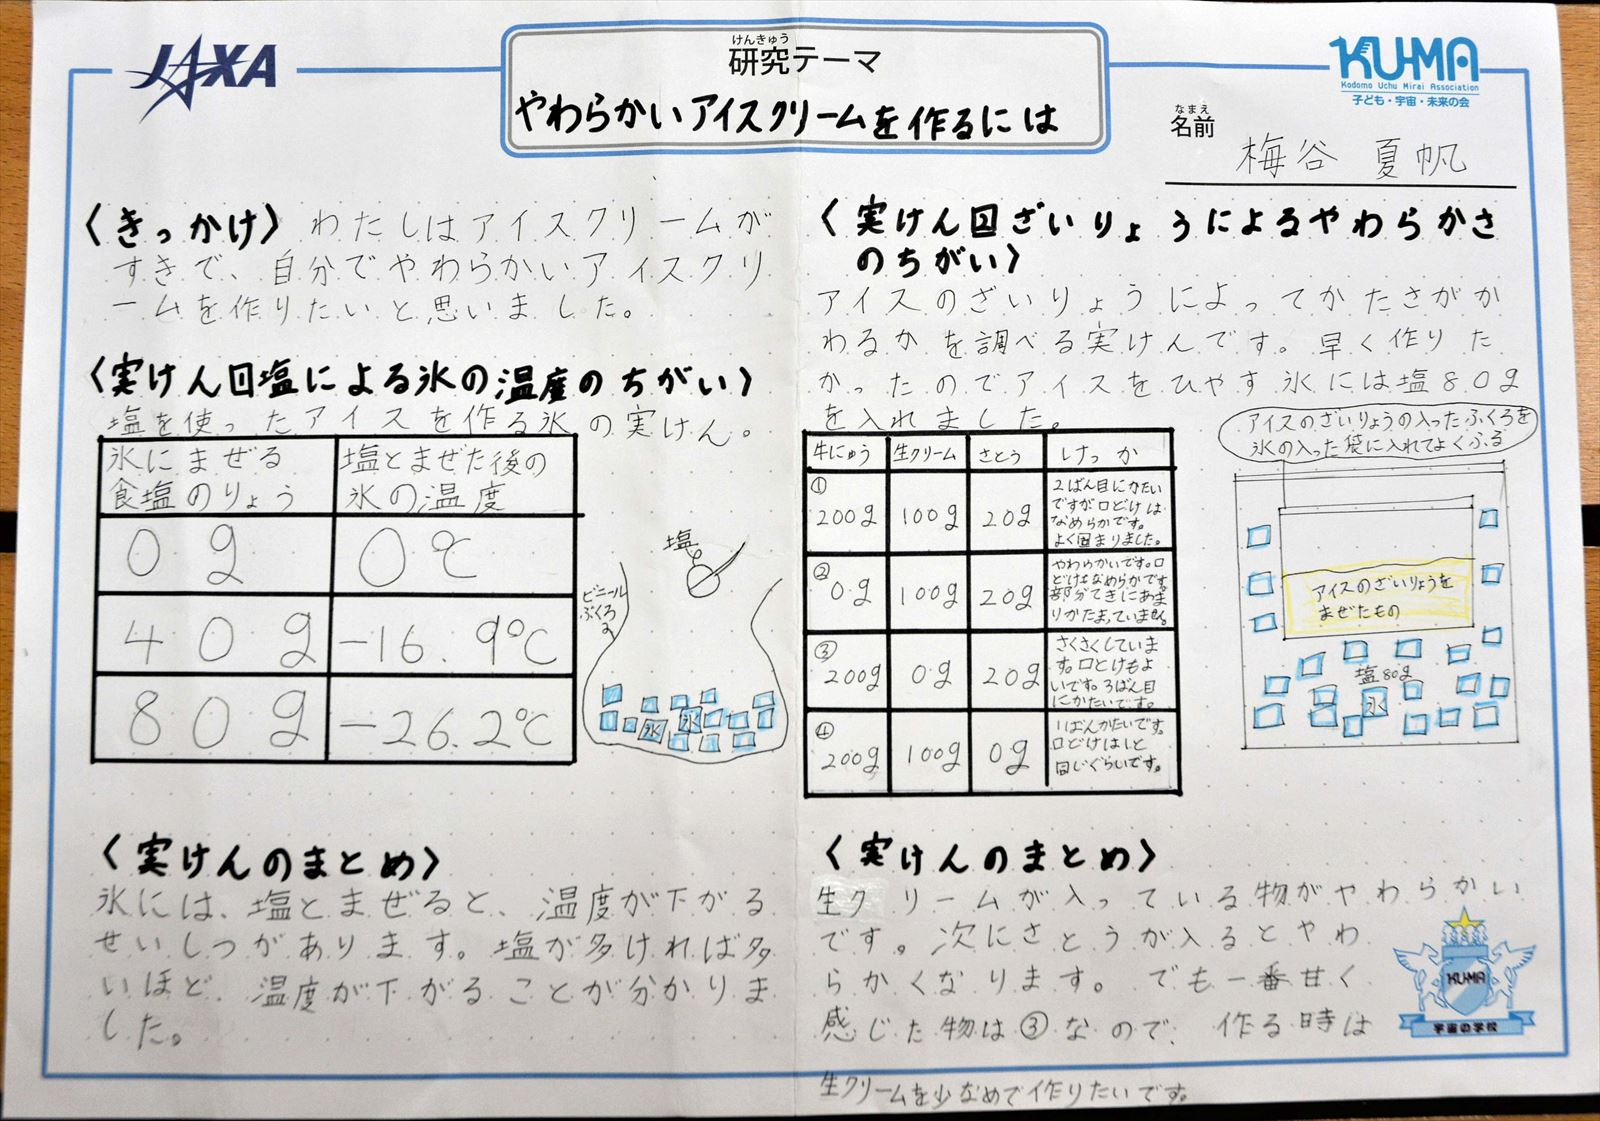 JAXA
けんきゅう
研究テーマ
やわらかいアイスクリームを作るには
KU-MA
Kodomo Uchu Mirai Association
子ども・宇宙・未来の会
なまえ
名前
梅谷 夏帆
〈きっかけ〉わたしはアイスクリームが
すきで、自分でやわらかいアイスクリ
ームを作りたいと思いました。
〈実けん1塩による氷の温度のちがい〉
塩を使ったアイスを作る氷の実けん。
氷にまぜる
食塩のりょう
塩とまぜた後の
氷の温度
0g
0℃
40g
-16.9℃
80g
-26.2℃
塩
ビニール
ぶくろ
氷
氷
〈実けんのまとめ〉
氷には、塩とまぜると、温度が下がる
せいしつがあります。塩が多ければ多
いほど、温度が下がることが分かりま
した。
〈実けん2ざいりょうによるやわらかさ
のちがい〉
アイスのざいりょうによってかたさがか
わるかを調べる実けんです。早く作りた
かったのでアイスをひやす氷には塩80g
を入れました。
牛にゅう
生クリーム
さとう
けっか
①
200g
100g
20g
2ばん目にかたい
ですが口どけは
なめらかです。
よく固まりました。
②
0g
100g
20g
やわらかいです。口
どけはなめらかです。
部分てきにあま
りかたまっていません。
③
200g
0g
20g
さくさくしていま
す。口どけもよ
いです。3ばん目
にかたいです。
④
200g
100g
0g
1ばんかたいです。
口どけは1と
同じぐらいです。
アイスのざいりょうの入ったふくろを
氷の入った袋に入れてよくふる
アイスのざいりょうを
まぜたもの
塩80g
氷
〈実けんのまとめ〉
生クリームが入っている物がやわらかい
です。次にさとうが入るとやわ
らかくなります。でも一番甘く
感じた物は③なので、作る時は
生クリームを少なめで作りたいです。
KU-MA
宇宙の学校